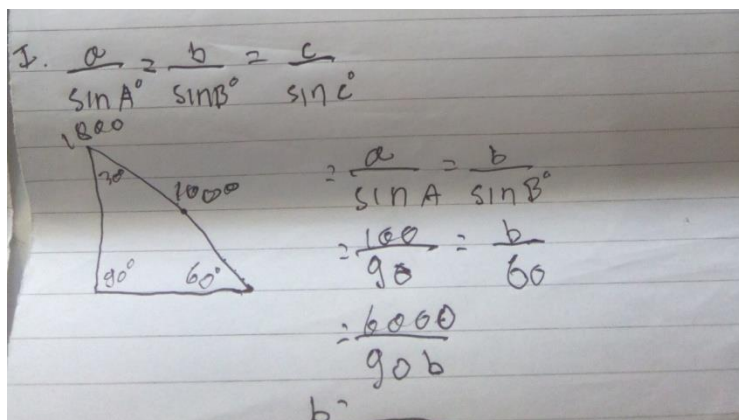 I. a/sin A° = b/sin B° = c/sin c°
1800
30
1000
90° 60°
= a/sin A = b/sin B°
= 100/90 = b/60
= 6000/90b
b =